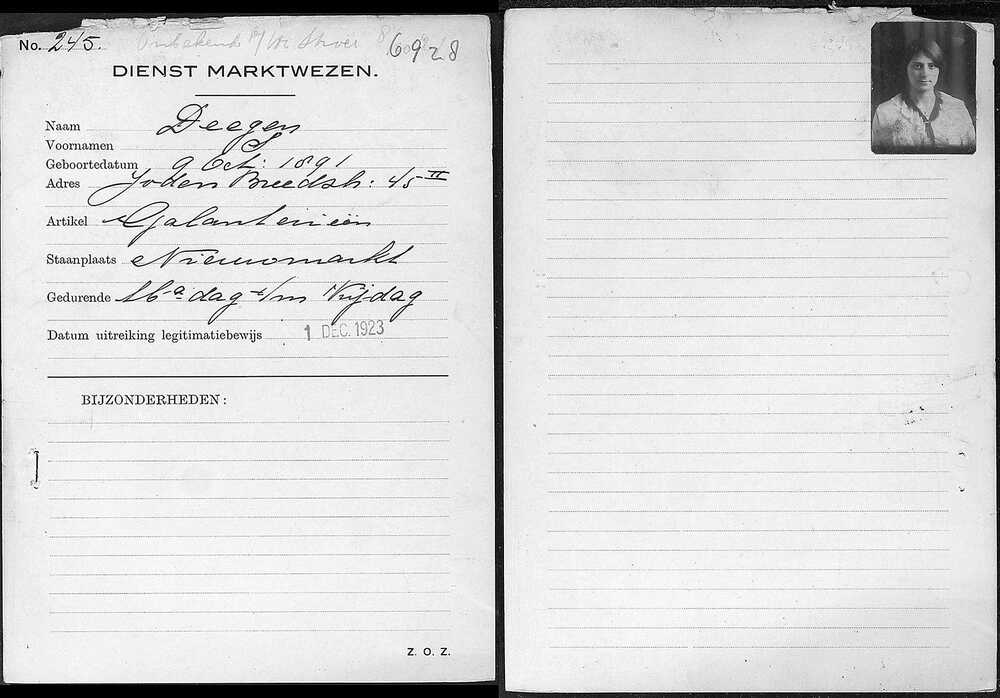 No. 245. Onbekend 6928
DIENST MARKTWEZEN.
Naam Deegen
Voornamen S
Geboortedatum 9 Oct: 1891
Adres Joden Breedstr: 45 II
Artikel Galanterieën
Staanplaats Nieuwmarkt
Gedurende Ma dag t/m Vrijdag
Datum uitreiking legitimatiebewijs 1 DEC. 1923
BIJZONDERHEDEN:
Z. O. Z.